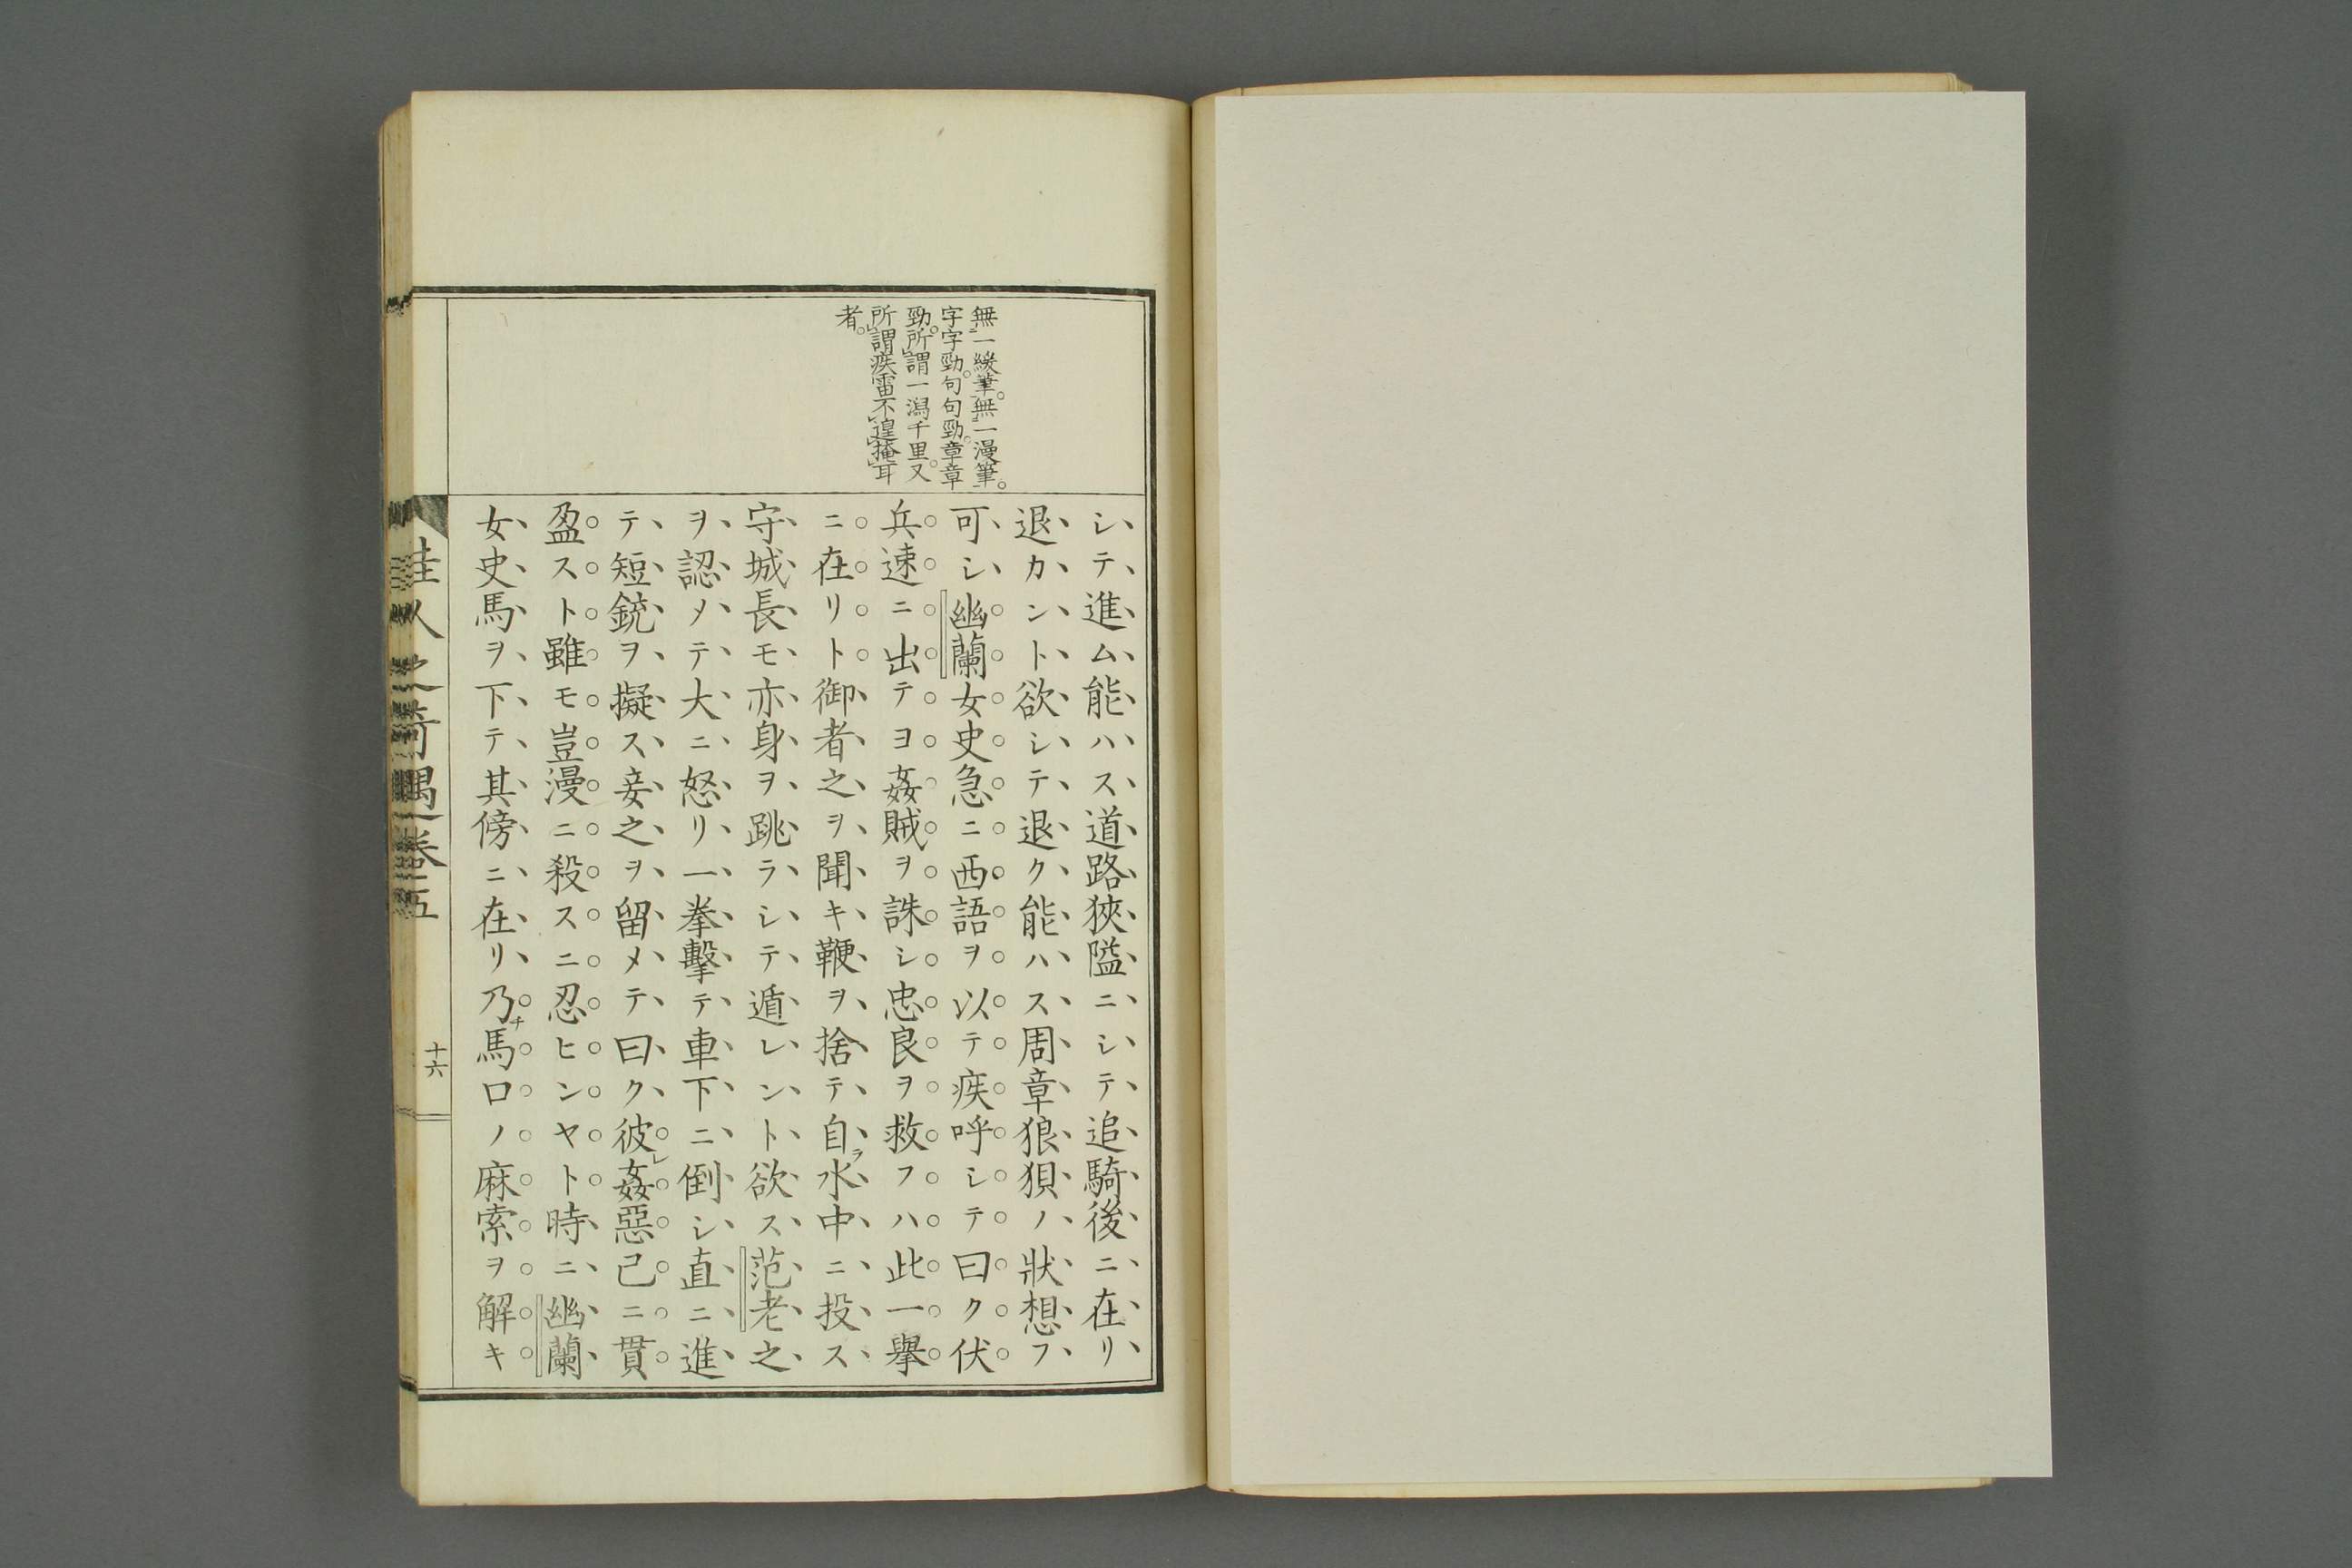 無一緩筆。無一漫筆。
字字勁。句句勁。章章
勁。所謂一潟千里。又
所謂疾雷不遑掩耳
者。
シテ進ム能ハス道路狹隘ニシテ追騎後ニ在リ
退カント欲シテ退ク能ハス周章狼狽ノ狀想フ
可シ幽蘭女史急ニ西語ヲ以テ疾呼シテ曰ク伏
兵速ニ出テヨ姦賊ヲ誅シ忠良ヲ救フハ此一擧
ニ在リト御者之ヲ聞キ鞭ヲ捨テ自ラ水中ニ投ス
守城長モ亦身ヲ跳ラシテ遁レント欲ス范老之
ヲ認メテ大ニ怒リ一拳擊テ車下ニ倒シ直ニ進
テ短銃ヲ擬ス妾之ヲ留メテ曰ク彼レ姦惡已ニ貫
盈スト雖モ豈漫ニ殺スニ忍ヒンヤト時ニ幽蘭
女史馬ヲ下テ其傍ニ在リ乃チ馬口ノ麻索ヲ解キ
佳人之奇遇卷五
十六